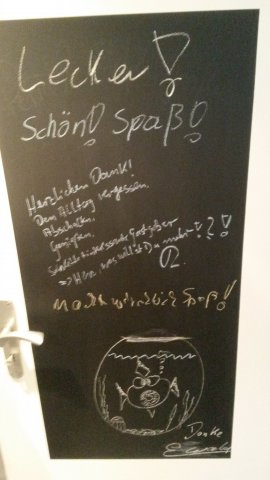 Lecker!
Schön! Spaß!
Herzlichen Dank!
Den Alltag vergessen.
Abschalten,
Genießen,
Gastgeber
=> Herz, was willst Du mehr ?!
Spaß!
Danke